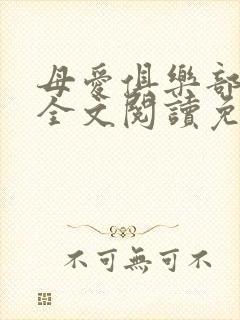 母愛俱樂部
全文閱讀免
不可無可不